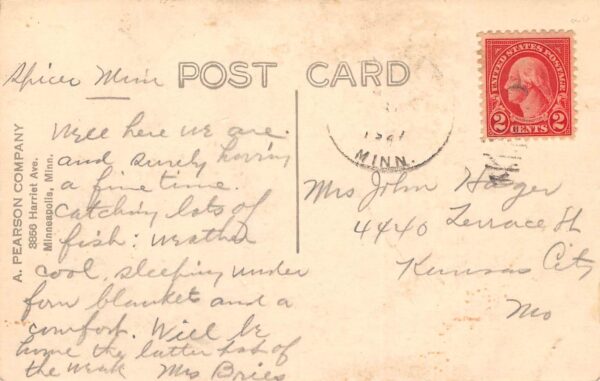 Spicer Minn
POST CARD
UNITED STATES POSTAGE
2 CENTS 2
MINN.
A. PEARSON COMPANY
3856 Harriet Ave.
Minneapolis, Minn.
Well here we are.
and surely having
a fine time.
catching lots of
fish: weather
cool, sleeping under
four blankets and a
comfort. Will be
home the latter part of
the week Mrs Bries
Mrs John Hager
4440 Terrace St
Kansas City
Mo